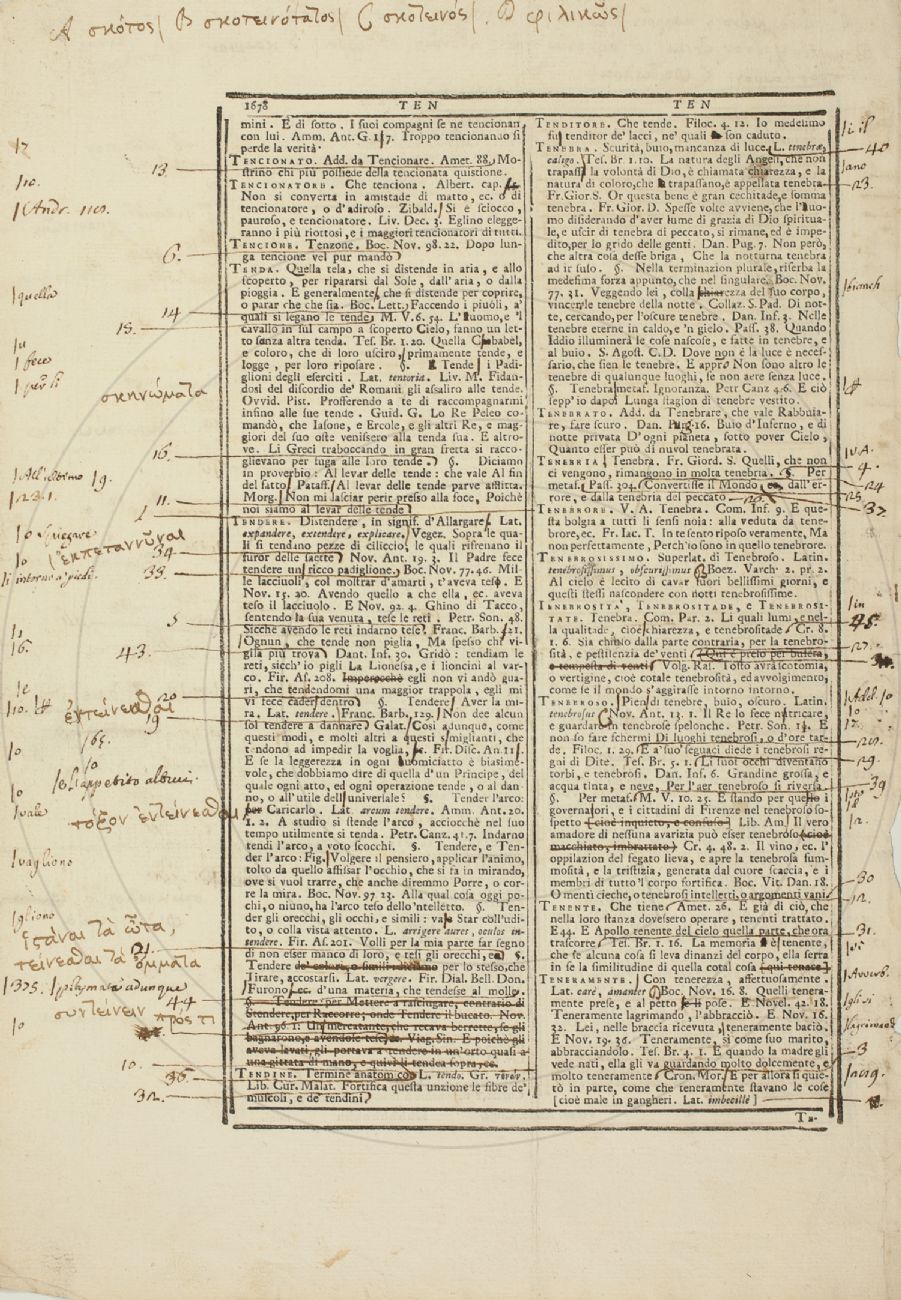 A σκότος/ B σκοτεινότατος/ C σκοτεινός/. D φιλικῶς/
1678 TEN TEN
mini. E di sotto. I suoi compagni se ne tencionan,
con lui. Amm. Ant. G. 1/7. Troppo tencionando si
perde la verità.
TENCIONATO. Add. da Tencionare. Amet. 88. Mo-
strino chi più possiede della tencionata quistione.
TENCIONATORE. Che tenciona. Albert. cap.
Non si converta in amistade di matto, ec. o di
tencionatore, o d'adiroso. Zibald. Si è sciocco,
pauroso, e tencionatore. Liv. Dec. 3. Eglino elegge-
ranno i più riottosi, e i maggiori tencionatori di tutti.
TENCIONE. Tenzone. Boc. Nov. 98. 22. Dopo lun-
ga tencione vel pur mandò
TENDA. Quella tela, che si distende in aria, e allo
scoperto, per ripararsi dal Sole, dall'aria, o dalla
pioggia. E generalmente, che si distende per coprire,
o parar che che sia. Boc. Lett. Faccendo i piuòli, a'
quali si legano le tende. M. V. 6. 54. L'uomo, e 'l
cavallo in sul campo a scoperto Cielo, fanno un let-
to sanza altra tenda. Tes. Br. 1. 20. Quella babel,
e coloro, che di loro usciro primamente tende, e
logge, per loro riposare. §. Tende i Padi-
glioni degli eserciti. Lat. tentoria. Liv. M. Fidan-
dosi del discordio de' Romani gli assaliro alle tende.
Ovvid. Pist. Profferendo a te di raccompagnarmi
infino alle sue tende. Guid. G. Lo Re Peleo co-
mandò, che Iasone, e Ercole, e gli altri Re, e mag-
giori del suo oste venissero alla tenda sua. E altro-
ve. Li Greci traboccando in gran fretta si racco-
glievano per fuga alle loro tende. §. Diciamo
in proverbio: Al levar delle tende: che vale Al fin
del fatto. Pataff. Al levar delle tende parve afflitta.
Morg. Non mi lasciar perir presso alla foce, Poichè
noi siamo al levar delle tende
TENDERE. Distendere, in signif. d'Allargare. Lat.
expandere, extendere, explicare. Vegez. Sopra le qua-
li si tendano pezze di cilliccio, le quali rifrenano il
furor delle saette Nov. Ant. 19. 3. Il Padre fece
tendere un ricco padiglione. Boc. Nov. 77. 46. Mil-
le lacciuoli, col mostrar d'amarti, t'aveva tesi. E
Nov. 15. 20. Avendo quello a che ella, ec. aveva
teso il lacciuolo. E Nov. 92. 4. Ghino di Tacco,
sentendo la sua venuta, tese le reti. Petr. Son. 48.
Sicchè avendo le reti indarno tese. Franc. Barb. 121.
Ognun, che tende non piglia, Ma spesso chi vi-
glia più trova. Dant. Inf. 30. Gridò: tendiam le
reti, sicch'io pigli La Lionessa, e i lioncini al var-
co. Fir. As. 208. Imperocchè egli non vi andò gua-
ri, che tendendomi una maggior trappola, egli mi
vi fece cader dentro §. Tendere Aver la mi-
ra. Lat. tendere. Franc. Barb. 129. Non dee alcun
sol tendere a campare Galat. Così adunque, come
questi modi, e molti altri a questi simiglianti, che
tendono ad impedir la voglia, ec. Fir. Disc. An. 11.
E se la leggerezza in ogni uomiciatto è biasimè-
vole, che dobbiamo dire di quella d'un Principe, del
quale ogni atto, ed ogni operazione tende, o al dan-
no, o all'utile dell'universale §. Tender l'arco:
per Caricarlo. Lat. arcum tendere. Amm. Ant. 20.
1. 2. A studio si stende l'arco, acciocchè nel suo
tempo utilmente si tenda. Petr. Canz. 41. 7. Indarno
tendi l'arco, a voto scocchi. §. Tendere, e Ten-
der l'arco: Fig. Volgere il pensiero, applicar l'animo,
tolto da quello affissar l'occhio, che si fa in mirando,
ove si vuol trarre, che anche diremmo Porre, o cor-
re la mira. Boc. Nov. 97 23. Alla qual cosa oggi po-
chi, o niuno, ha l'arco teso dello 'ntelletto. §. Ten-
der gli orecchi, gli occhi, e simili: vale Star coll'udi-
to, o colla vista attento. L. arrigere aures, oculos in-
tendere. Fir. As. 201. Volli per la mia parte far segno
di non esser manco di loro, e tesi gli orecchi, ec. §.
Tendere de' colori, o simili diciamo per lo stesso, che
Tirare, accostarsi. Lat. vergere. Fir. Dial. Bell. Don.
Furono, ec. d'una materia, che tendesse al molle.
§. Tendere per Mettere a rasciugare, contrario di
Stendere, per Raccorre; onde Tendere il bucato. Nov.
Ant. 96. 1. Un mercatante, che recava berrette, se gli
bagnarono, e avendole tese, ec. Viag. Sin. E poichè gli
aveva lavati, gli portava a tendere in un'orto quasi a
una gittata di mano, e quivi li tendea sopra, ec.
TENDINE. Termine anatomico L. tendo. Gr. τένων.
Lib. Cur. Malat. Fortifica questa unzione le fibre de'
muscoli, e de' tendini
TENDITORE. Che tende. Filoc. 4. 12. Io medesimo
fui tenditor de' lacci, ne' quali son caduto.
TENEBRA. Scurità, buio, mancanza di luce. L. tenebrae,
caligo. Tes. Br. 1. 10. La natura degli Angeli, che non
trapassò la volontà di Dio, è chiamata chiarezza, e la
natura di coloro, che trapassano, è appellata tenebra.
Fr. Gior. S. Or questa bene è gran cechitade, e somma
tenebra. Fr. Gior. D. Spesse volte avviene, che l'uo-
mo disiderando d'aver lume di grazia di Dio spiritua-
le, e uscir di tenebra di peccato, si rimane, ed è impe-
dito, per lo grido delle genti. Dan. Pug. 7. Non però,
che altra cosa desse briga, Che la notturna tenebra
ad ir suso. §. Nella terminazion plurale, riserba la
medesima forza appunto, che nel singulare. Boc. Nov.
77. 31. Veggendo lei, colla chiarezza del suo corpo,
vincer le tenebre della notte. Collaz. S. Pad. Di not-
te, cercando, per l'oscure tenebre. Dan. Inf. 3. Nelle
tenebre eterne in caldo, e 'n gielo. Pass. 38. Quando
Iddio illuminerà le cose nascose, e fatte in tenebre, e
al buio. S. Agost. C. D. Dove non è la luce è neces-
sario, che sien le tenebre. E appr. Non sono altro le
tenebre di qualunque luoghi, se non aere senza luce.
§. Tenebra metaf. Ignoranza. Petr Canz 4. 6. E ciò
sepp'io dapoi Lunga stagion di tenebre vestito.
TENEBRATO. Add. da Tenebrare, che vale Rabbuia-
re, fare scuro. Dan. Purg. 16. Buio d'Inferno, e di
notte privata D'ogni pianeta, sotto pover Cielo,
Quanto esser può di nuvol tenebrata.
TENEBRIA Tenebra. Fr. Giord. S. Quelli, che non
ci vengono, rimangono in molta tenebria. §. Per
metaf. Pass. 304. Convertisse il Mondo, ec. dall'er-
rore, e dalla tenebria del peccato
TENEBRORE. V. A. Tenebra. Com. Inf. 9. E que-
sta bolgia a tutti li sensi noia: alla veduta da tene-
brore, ec. Fr. Iac. T. In te sento riposo veramente, Ma
non perfettamente, Perch'io sono in quello tenebrore.
TENEBROSISSIMO. Superlat. di Tenebroso. Latin.
tenebrosissimus, obscurissimus Boez. Varch. 2. pr. 2.
Al cielo è lecito di cavar fuori bellissimi giorni, e
questi stessi nascondere con notti tenebrosissime.
TENEBROSITA', TENEBROSITADE, e TENEBROSI-
TATE. Tenebra. Com. Par. 2. Li quali lumi, e nel-
la qualitade, cioè chiarezza, e tenebrositade Cr. 8.
1. 6. Sia chiuso dalla parte contraria, per la tenebro-
sità, e pestilenza de' venti (Qui è preso per bufera,
e tempesta di venti) Volg. Ras. Tosto avrà scotomia,
o vertigine, cioè cotale tenebrosità, ed avvolgimento,
come se il mondo s'aggirasse intorno intorno.
TENEBROSO. Pien di tenebre, buio, oscuro. Latin.
tenebrosus Nov. Ant. 13. 1. Il Re lo fece nutricare,
e guardare in tenebrose spelonche. Petr. Son. 14. E
non so fare schermi Di luoghi tenebrosi, o d'ore tar-
de. Filoc. 1. 29. E a' suo' seguaci diede i tenebrosi re-
gni di Dite. Tes. Br. 5. 1. Li suoi occhi diventano
torbi, e tenebrosi. Dan. Inf. 6. Grandine grossa, e
acqua tinta, e neve, Per l'aer tenebroso si riversa.
§. Per metaf. M. V. 10. 25. E stando per questo i
governatori, e i cittadini di Firenze nel tenebroso so-
spetto (cioè inquieto, e confuso) Lib. Am. Il vero
amadore di nessuna avarizia può esser tenebroso (cioè
macchiato, imbrattato) Cr. 4. 48. 2. Il vino, ec. l'
oppilazion del fegato lieva, e apre la tenebrosa fum-
mosità, e la tristizia, generata dal cuore scaccia, e i
membri di tutto 'l corpo fortifica. Boc. Vit. Dan. 18.
O menti cieche, o tenebrosi intelletti, o argomenti vani.
TENENTE. Che tiene. Amet. 26. E già di ciò, che
nella loro stanza dovessero operare, tenenti trattato.
E 44. E Apollo tenente del cielo quella parte, che ora
trascorre Tes. Br. 1. 16. La memoria è tenente,
che se alcuna cosa si leva dinanzi del corpo, ella serra
in se la similitudine di quella cotal cosa (qui tenace)
TENERAMENTE. Con tenerezza, affettuosamente.
Lat. carè, amanter Boc. Nov. 16. 8. Quelli tenera-
mente prese, e al petto se li pose. E Novel. 42. 18.
Teneramente lagrimando, l'abbracciò. E Nov. 16.
32. Lei, nelle braccia ricevuta, teneramente baciò.
E Nov. 19. 36. Teneramente, si come suo marito,
abbracciandolo. Tes. Br. 4. 1. E quando la madre gli
vede nati, ella gli va guardando molto dolcemente, e
molto teneramente Cron. Mor. E per allora si quie-
tò in parte, come che teneramente stavano le cose
[cioè male in gangheri. Lat. imbecillè]
Te-
13
/Andr. nes.
6.
/quella
14
15.
/fece
σκηνώματα
16.
/All'ultimo 19.
/23.1.
11.
/o Spiegare
ἐκπεταννῦναι
34
33.
/intorno a' piedi.
5
43.
20
ἐντείνεσθαι
19
165.
/vale
τόξον ἐντείνεσθαι
/vagliono
/gliono
ἱστάναι τὰ ὦτα,
21.
τείνεσθαι τὰ ὄμματα
συντείνειν πρός τι
44
10.
36.
32.
40
23.
/bianch
/V.A.
4.
24
25.
37
/in
45.
29.
39
30
12.
31.
/Avverb.
/gli si
3